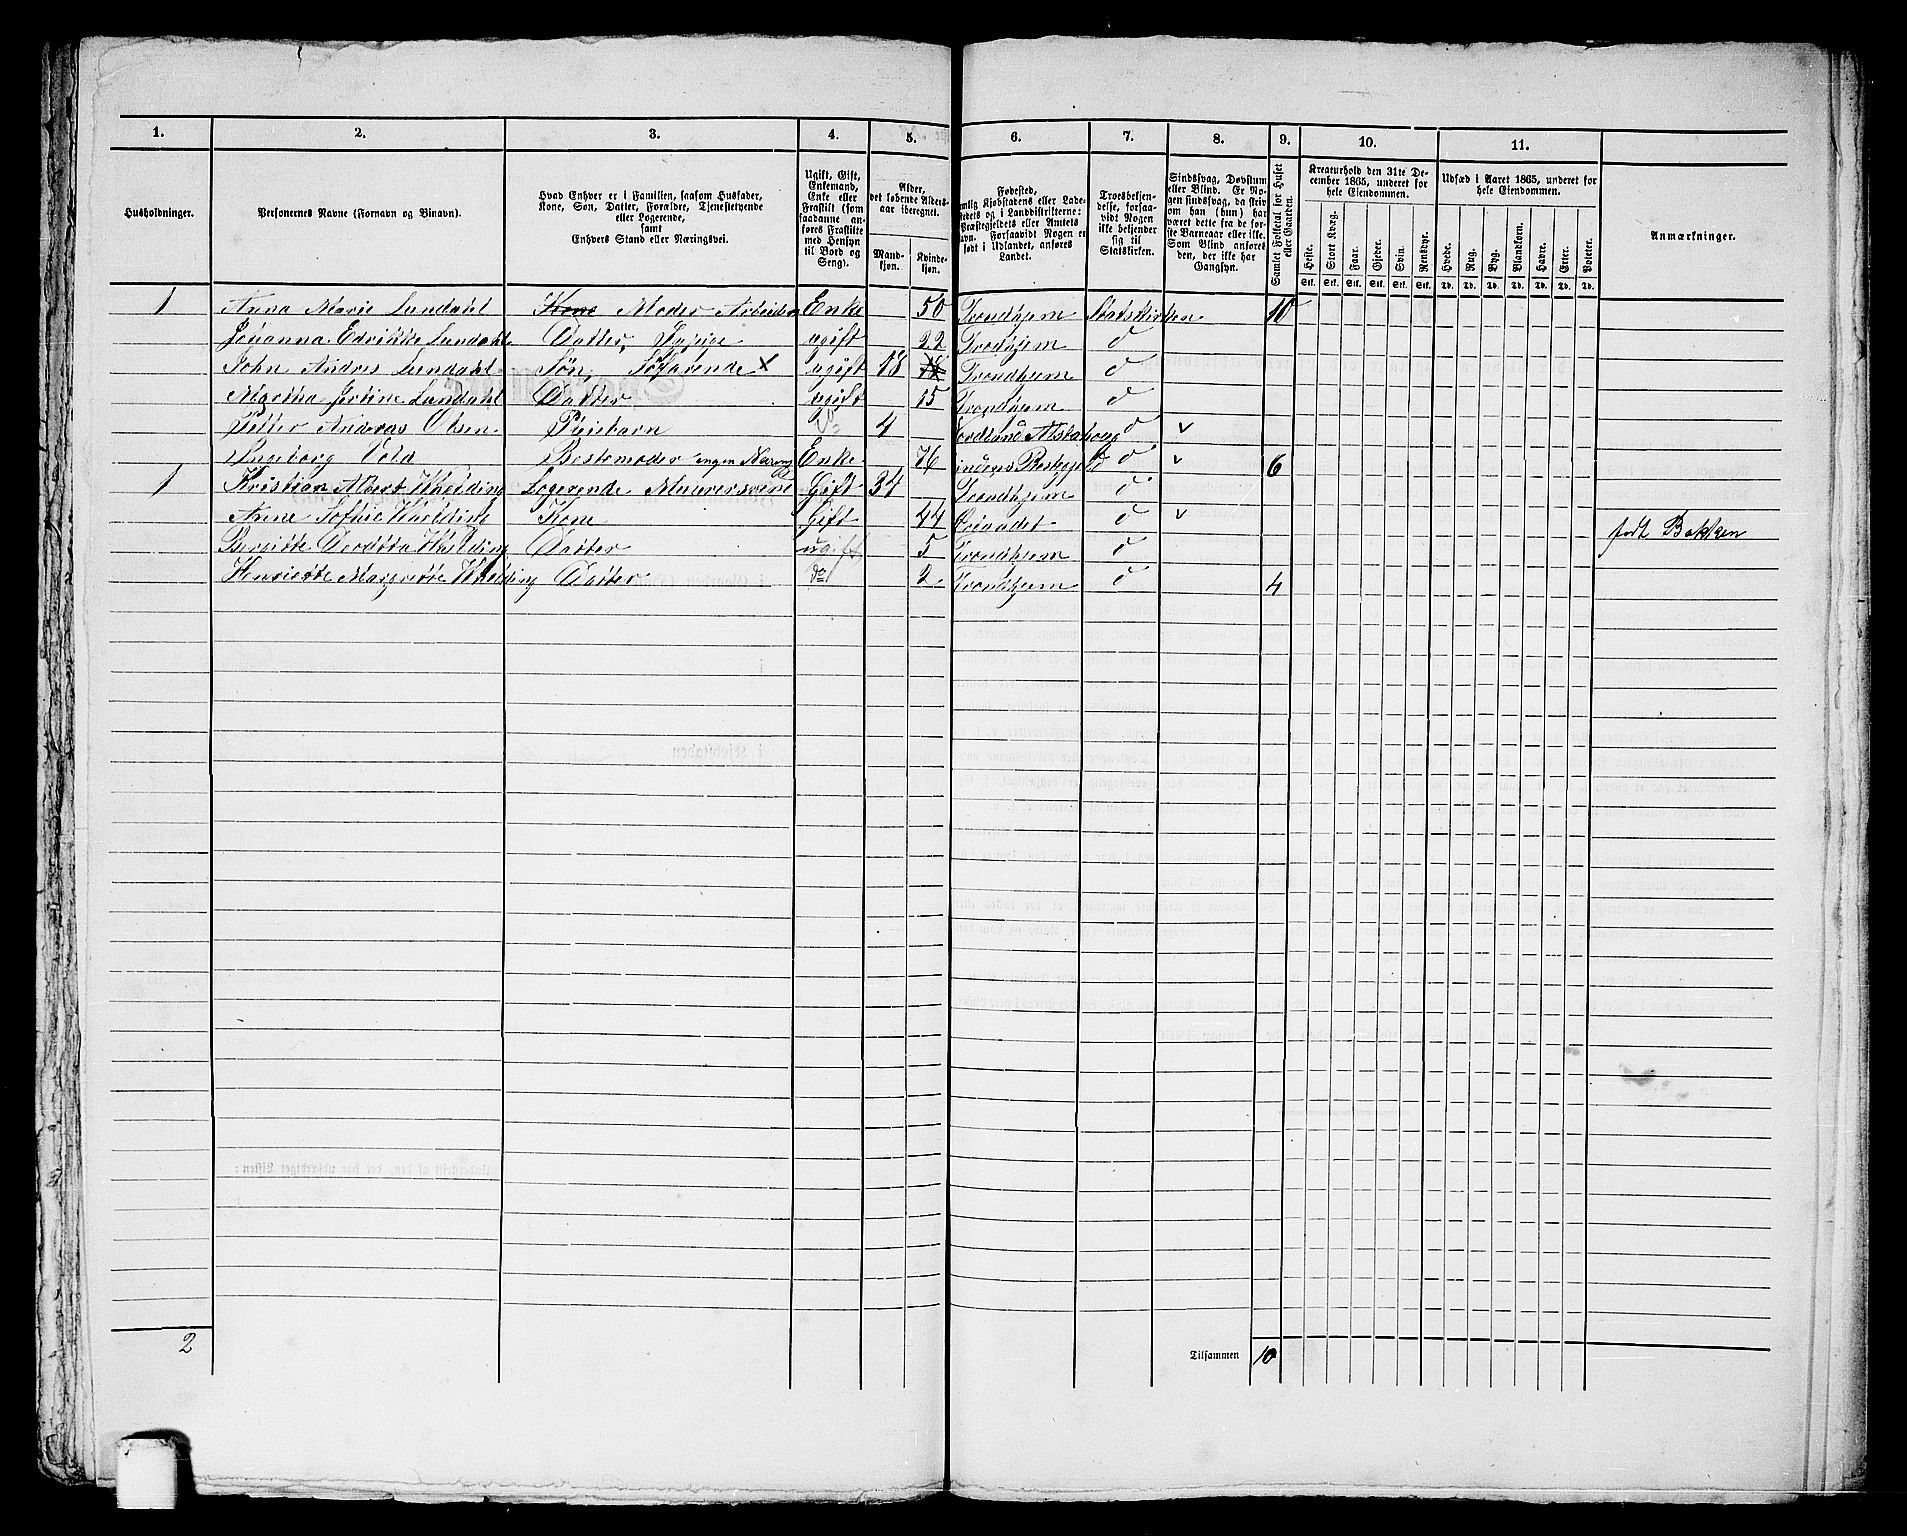 1. 2. 3. 4. 5. 6. 7. 8. 9. 10. 11.
Husholdninger.
Personernes Navne (Fornavn og Binavn).
Hvad Enhver er i Familien, saasom Husfader,
Kone, Søn, Datter, Forældre, Tjenestetyende
eller Logerende,
samt
Enhvers Stand eller Næringsvei.
Ugift, Gift,
Enkemand,
Enke eller
Fraskilt (som
saadanne an-
føres Fraskilte
med Hensyn
til Bord og
Seng).
Alder,
det løbende Alders-
aar iberegnet.
Mand-
kjøn.
Kvinde-
kjøn.
Fødested,
nemlig Kjøbstadens eller Lade-
stedets og i Landdistrikterne:
Præstegjeldets eller Amtets
Navn. Forsaavidt Nogen er
født i Udlandet, anføres
Landet.
Troesbekjen-
delse, forsaa-
vidt Nogen
ikke bekjender
sig til
Statskirken.
Sindssvag, Døvstum
eller Blind. Er No-
gen sindssvag, da skriv
om han (hun) har
været dette fra de før-
ste Barneaar eller ikke.
Som Blind anføres
den, der ikke har
Gangsyn.
Samlet Folketal for Huset
eller Gaarden.
Kreaturhold den 31te De-
cember 1865, underet for
hele Eiendommen.
Heste. Stort Kvæg. Faar. Gjeder. Svin. Rensdyr.
Stk. Stk. Stk. Stk. Stk. Stk.
Udsæd i Aaret 1865, underet for
hele Eiendommen.
Hvede. Rug. Byg. Blandkorn. Havre. Erter. Poteter.
Td. Td. Td. Td. Td. Td. Td.
Anmærkninger.
1 Anna Marie Lundahl Kone Moder Arbeider Enke 50 Trondhjem Statskirken 10
Johanna Edrikke Lundahl Datter, ugift 22 Trodhjem d
John Andres Lundahl Søn, Søfarende x ugift 18 Trondhjem d
Martha Jertine Lundahl Datter ugift 15 Trondhjem d
Petter Anderas Olsen Pleiebarn 4 Nordland Alstahoug d v
Ingeborg Vold Bestemoder ingen Næring Enke 76 d v 6
1 Kristian Albert Whelding Logerende Muurersvend Gift 34 Trondhjem d
Anne Sofhie Whelding Kone Gift 44 d v født Bakken
Bergitte Dordtta Whelding Datter ugift 5 Trondhjem d
Henriette Margrette Whelding Datter do 2 Trondhjem d 4
2 Tilsammen 10